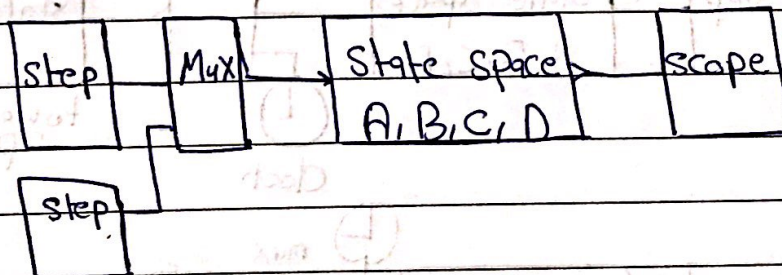 Step
Mux
State space
A, B, C, D
scope
step